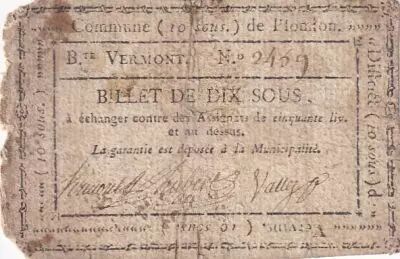 Commune (10 sous.) de
B.te VERMONT. N.o 2459
BILLET DE DIX SOUS,
à échanger contre des Assignats de cinquante liv.
et au dessus.
La garantie est déposée à la Municipalité.
(10 sous)
(10 sous)
(10 sous)